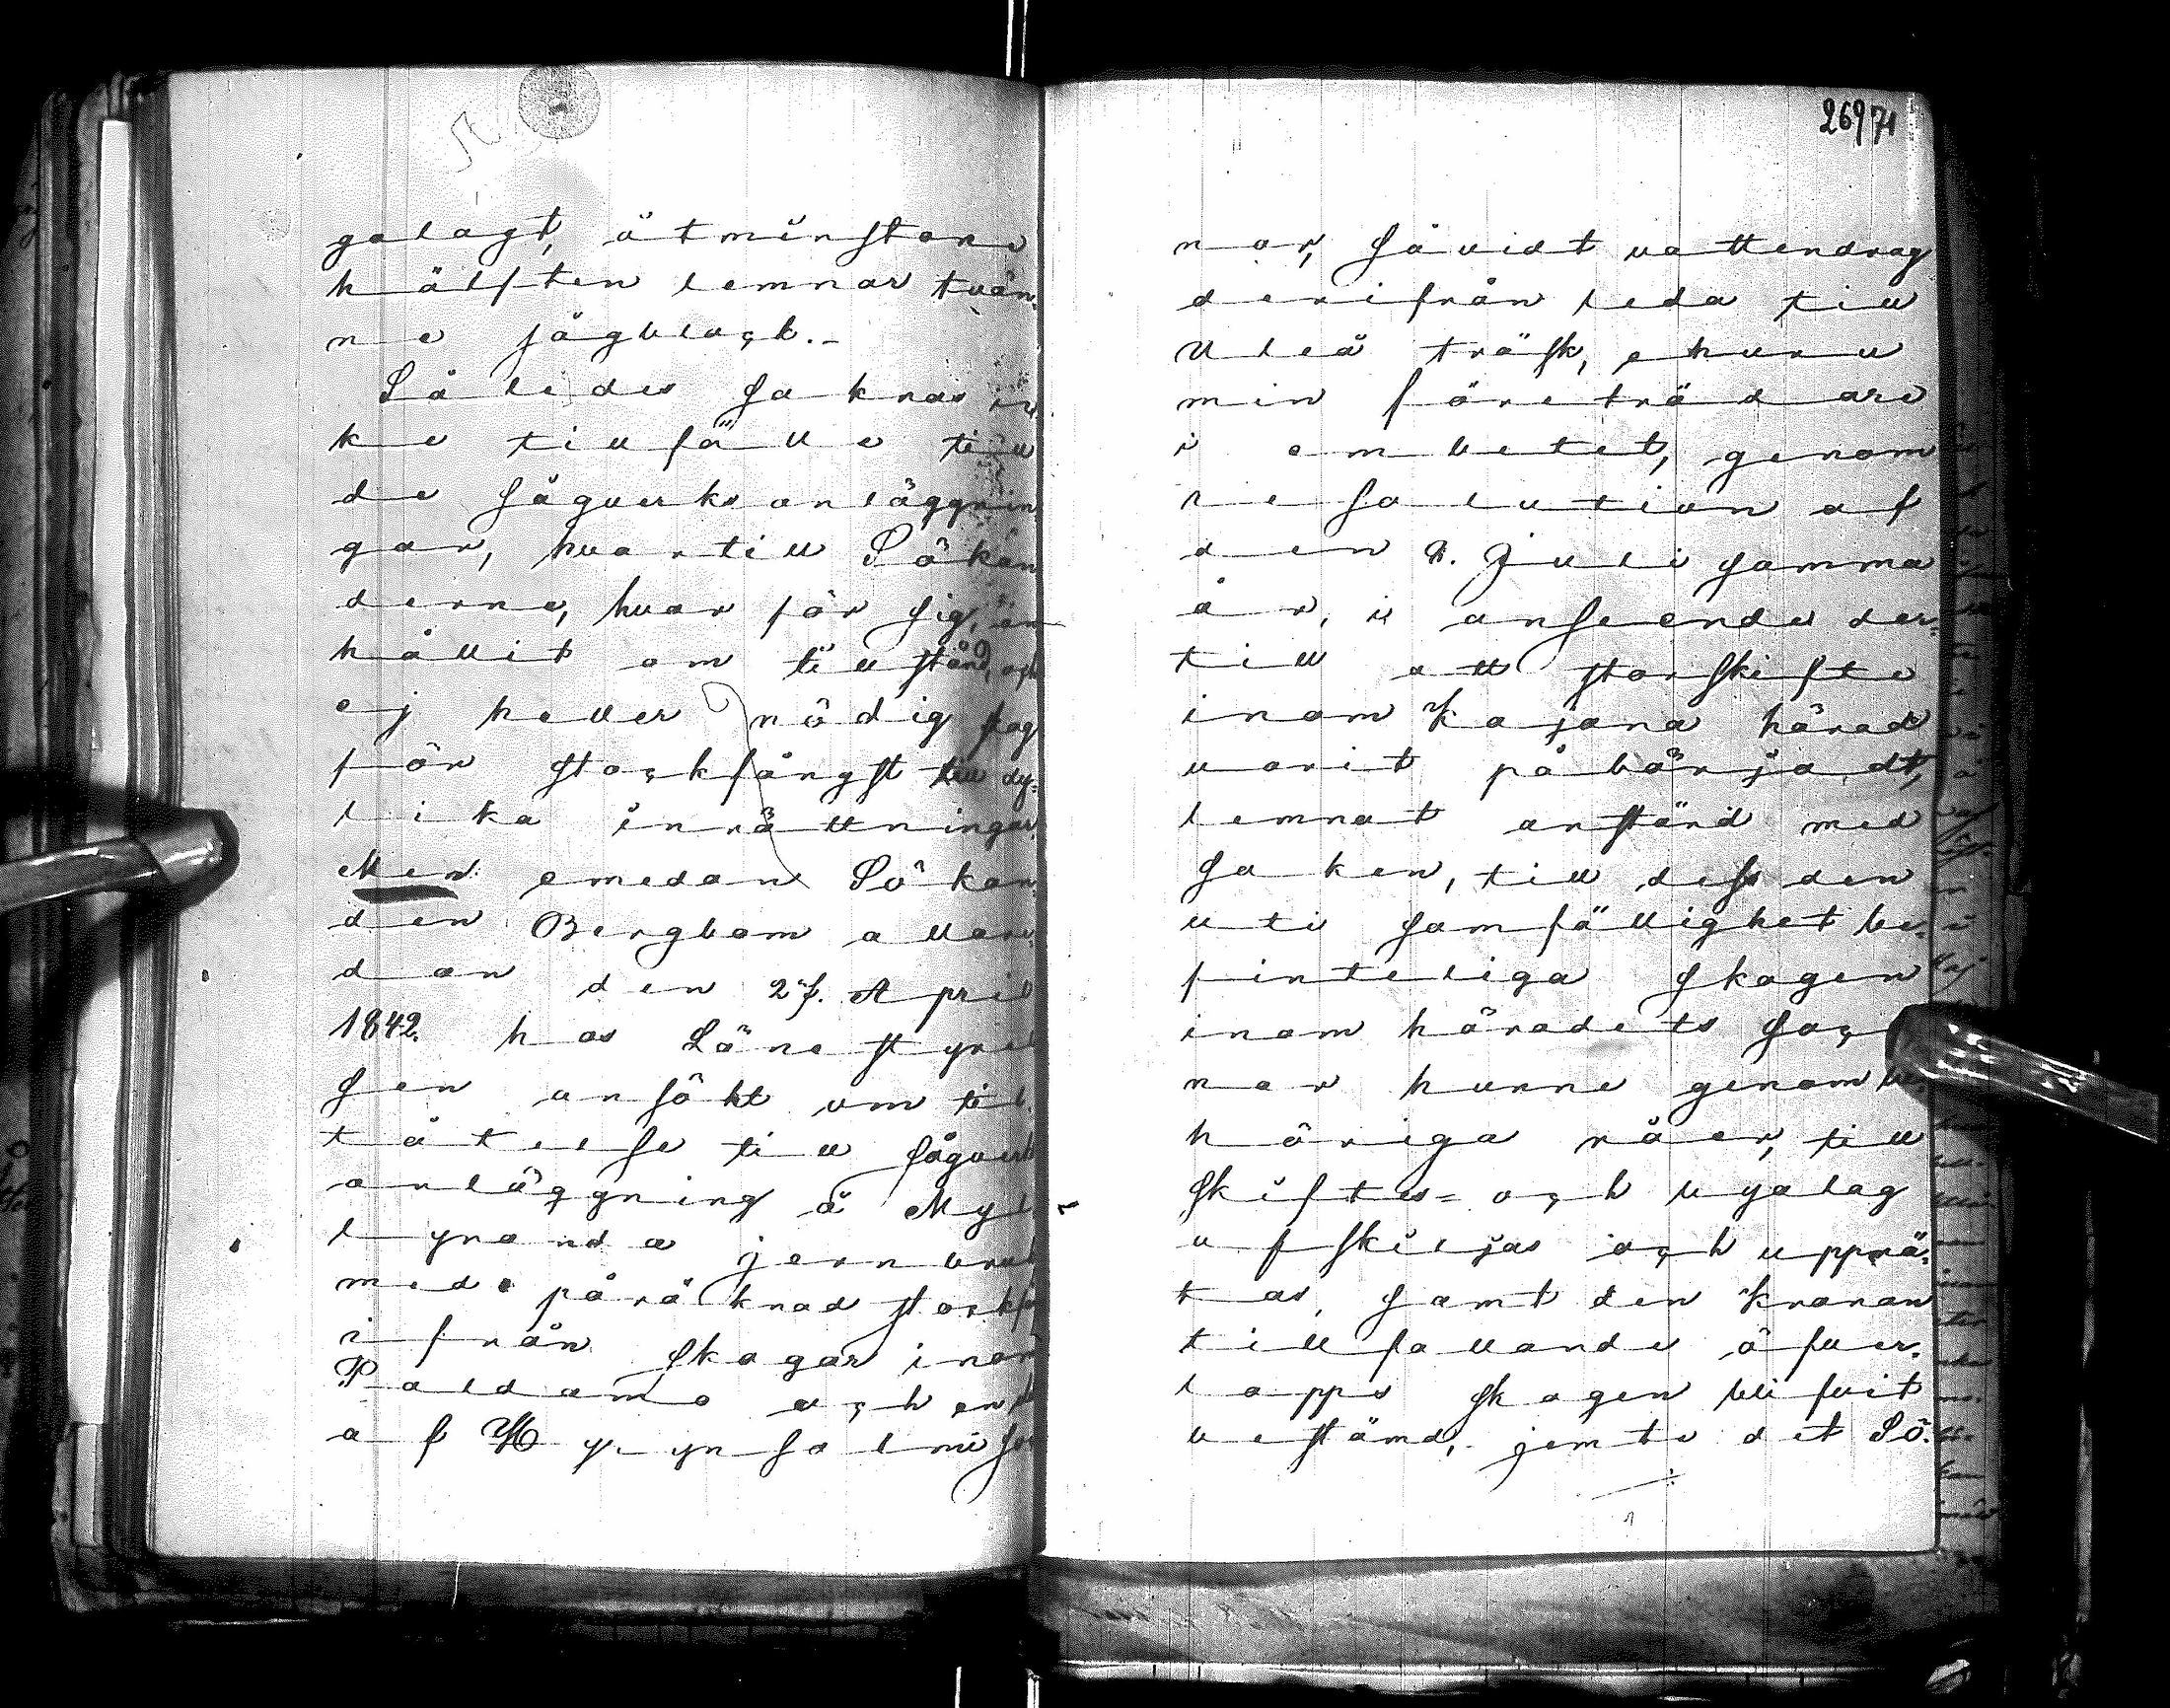 golagt, åtminstone
hälften lemnar tvän-
ne sågblock.-
Således saknas ic
ke tillfälle till
de sågverksanläggnin
gar, hvartill Sökan
derne, hvar för sig, an
hållit om tillstånd, och
ej heller nödig skog
för stockfångst till dy-
lika inrättningar.
Men emedan Sökan-
den Bergbom allare-
dan den 27. April
1842. hos Länestyrel
sen ansökt om til-
låtelse till sågverk
anläggning å Myl
lyranda jernbruk
med påräknad stockfå
ifrån skogar inom
Paldamo och en del
af Hyrynsalmi soc
269 71
nar, såvidt vattendrag
derifrån leda till
Uleå träsk, ehuru
min företrädare
i embetet, genom
resolution af
den 8. Juli samma
år, i anseende der-
till att storskifte
inom Kajana härad
varit påbörjadt,
lemnat anstånd med
saken, till dess den
uti samfällighet be-
finteliga skogen
inom häradets soc
nar hunne genom be-
höriga råer, till
skiftes- och byalag
afskiljas och upprä-
tas, samt den Kronan
tillfallande öfver-
lopps skogen blifvit
bestämd, jemte det Sö-